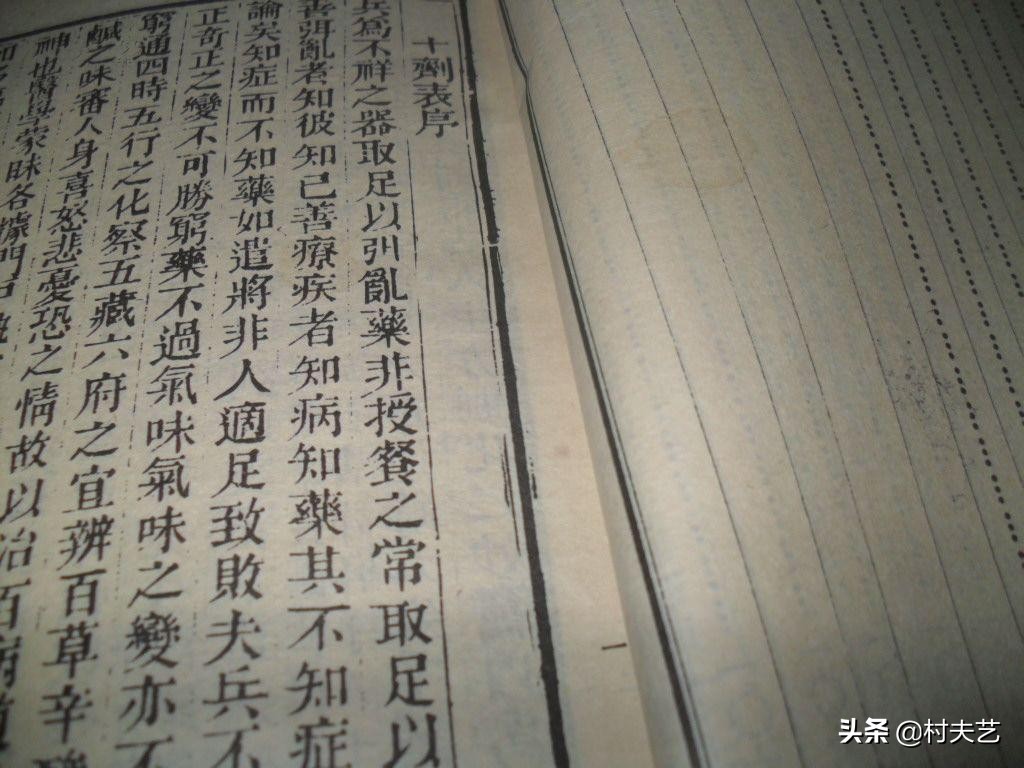 十劑表序
兵爲不祥之器取足以弭亂藥非授餐之常取足以
善弭亂者知彼知己善療疾者知病知藥其不知症
論矣知症而不知藥如遣將非人適足致敗夫兵不
正奇正之變不可勝窮藥不過氣味氣味之變亦不
窮通四時五行之化察五藏六府之宜辨百草辛
鹹之味審人身喜怒悲憂恐之情故以治百病
神也醫學蒙昧各據門戶
一
头条 @村夫艺